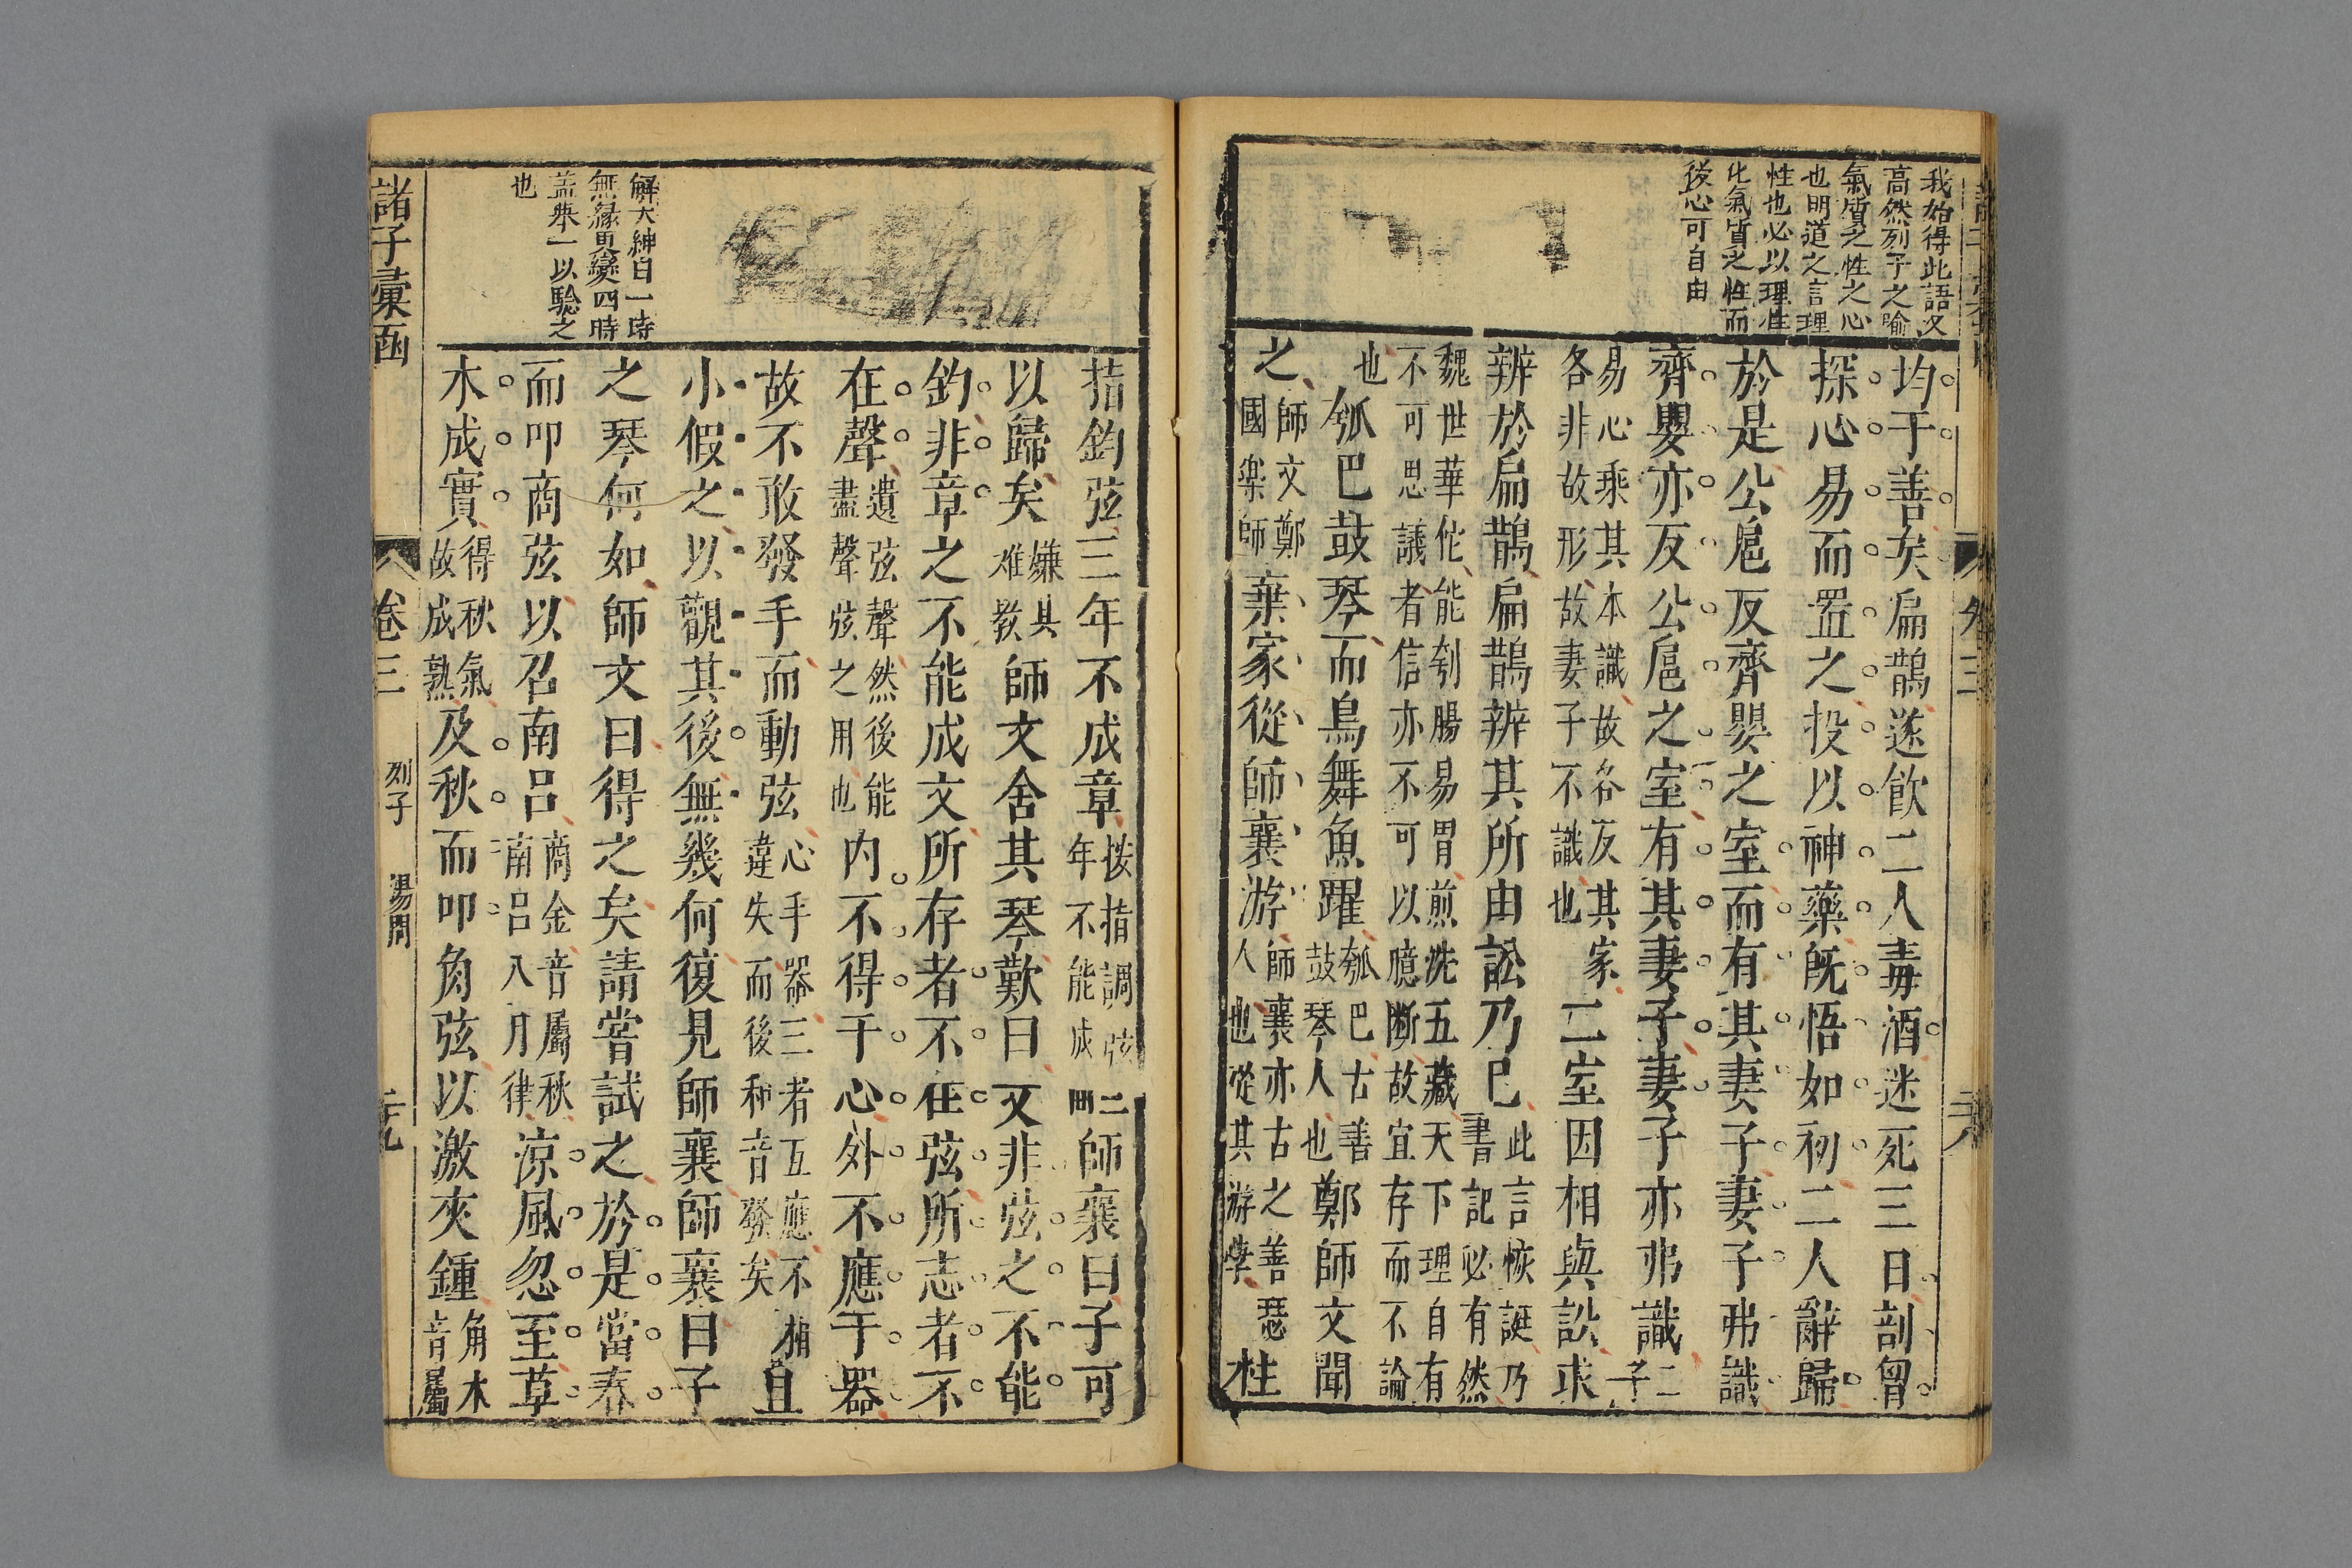 我始得此語又
高然列子之喻
氣質之性之心
也明道之言理
性也必以理性
化氣質之性而
後心可自由
均于善矣扁鵲遂飲二人毒酒迷死三日剖胷
探心易而置之投以神藥旣悟如初二人辭歸
於是公扈反齊嬰之室而有其妻子妻子弗識
齊嬰亦反公扈之室有其妻子妻子亦弗識二子
易心乘其本識故各反其家
各非故形故妻子不識也
二室因相與訟求
辨於扁鵲扁鵲辨其所由訟乃已
此言恢誕乃
書記必有然
魏世華佗能刳腸易胃煎洗五藏天下理自有
不可思議者信亦不可以臆斷故宜存而不論
也
瓠巴鼓琴而鳥舞魚躍
瓠巴古善
鼓琴人也
鄭師文聞
之
師文鄭
國樂師
棄家從師襄游
師襄亦古之善琴
人也從其游學
柱
指鈞弦三年不成章
按指調弦三
年不能成曲
師襄曰子可
以歸矣
嫌其
难教
師文舍其琴歎曰文非弦之不能
鈞非章之不能成文所存者不在弦所志者不
在聲
遺弦聲然後能
盡聲弦之用也
内不得于心外不應于器
故不敢發手而動弦
心手器三者互應不相
違失而後和音發矣
且
小假之以觀其後無幾何復見師襄師襄曰子
之琴何如師文曰得之矣請嘗試之於是當春
而叩商弦以召南呂
商金音屬秋
南呂八月律
涼風忽至草
木成實
得秋氣
故成熟
及秋而叩角弦以激夾鍾
角木
音屬
解大紳曰一時
無緣更變四時
盖舉一以騐之
也
諸子彙函
卷三
列子
湯問
二九
卷三
二八